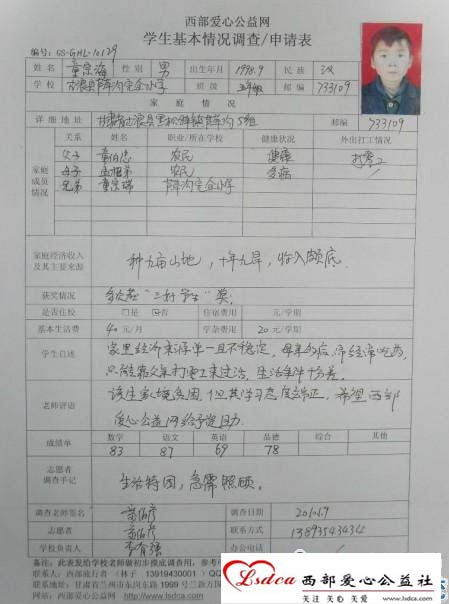 西部爱心公益网
学生基本情况调查/申请表
编号: GS-GHL-10129
姓名 童宗海 性别 男 出生年月 1998.9 民族 汉
学校 古浪县 完全小学 班级 五年级 邮编 733109
家庭情况
详细地址 甘肃省古浪县黑松驿镇 沟5组 邮编 733109
关系 姓名 职业/所在学校 健康状况 外出打工情况
家庭成员情况
父子 农民 健康 打零工
母子 农民 多病
兄弟 童宗瑞 沟完全小学
家庭经济收入及其主要来源 种九亩山地,十年九旱,收入颇底.
获奖情况 多次获"三好学生"奖;
是否住校 □是 否 住宿费用 元/学期
基本生活费 40元/月 学杂费用 20元/学期
学生自述 家里经济来源单一且不稳定,母亲多病,常经常吃药,
只能靠父亲打零工来过活,生活条件十分差。
老师评语 该生家境贫困,但其学习态度端正,希望西部
爱心公益网给予资助.
成绩单 数学 语文 英语 品德 综合 其他
83 87 69 78
志愿者调查手记 生活特困,急需照顾.
调查老师签名 调查日期 2010.6.9
志愿者 联系方式 13893543434
学校负责人 办公电话
备注:此表发给学校老师做初步摸底调查用,参考
联系人:西部旅行者(林子 13919430001) QQ
联系地址:甘肃省兰州市东岗东路1999号兰新方
Lsdca 西部爱心公益社
关注 关心 关爱 www.lsdca.com